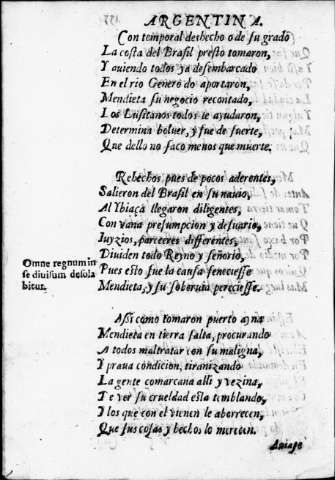 ARGENTINA.
Con temporal deshecho o de su grado
La costa del Brasil presto tomaron,
Y auiendo todos ya desembarcado
En el rio Genero do aportaron,
Mendieta su negocio recontado,
Los Lusitanos todos le ayudaron,
Determina boluer, y fue de suerte,
Que dello no saco menos que muerte.
Rehechos pues de pocos aderentes,
Salieron del Brasil en su nauio,
Al Ybiaça llegaron diligentes,
Con vana presumpcion y desuario,
Iuyzios, pareceres differentes,
Diuiden todo Reyno y señorio,
Omne regnum in
se diuisum desola
bitur.
Pues esto fue la causa feneciesse
Mendieta, y su soberuia pereciesse.
Assi como tomaron puerto ayna
Mendieta en tierra salta, procurando
A todos maltratar con su maligna,
Y praua condicion, tiranizando
La gente comarcana alli y vezina,
Te ver su crueldad esta temblando,
Y los que con el vienen le aborrecen,
Que sus cosas y hechos lo merecen.